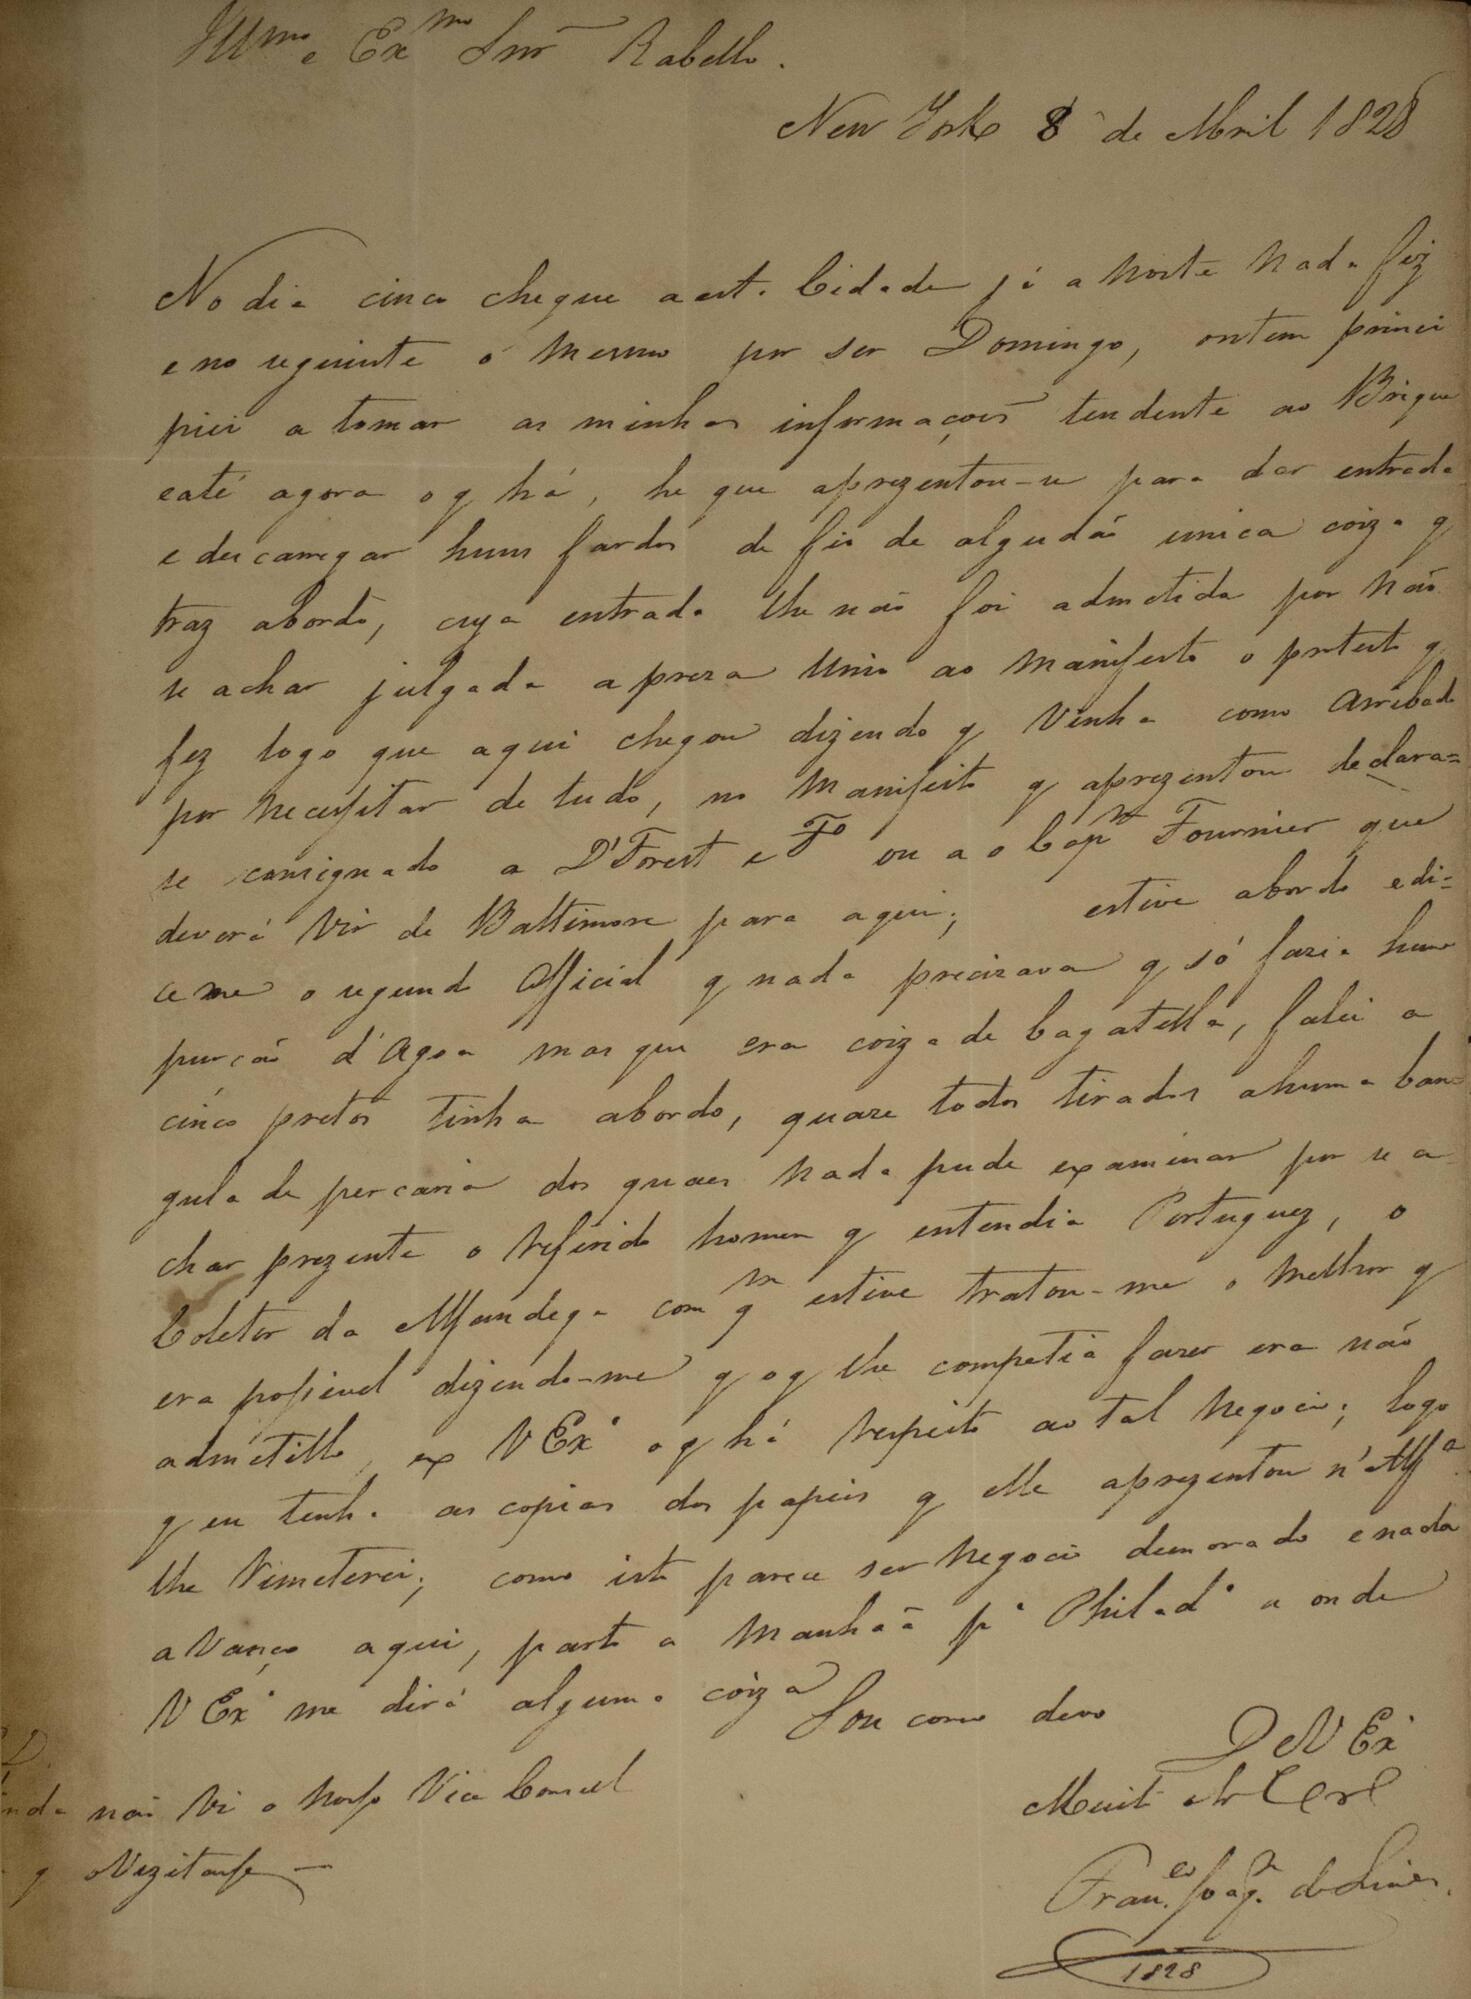 Illmo e Exmo Snr Rabello.
New York 8 de Abril 1828
No dia cinco chegue a esta Cidade já a noite nada fiz
e no seguinte o mesmo por ser Domingo, ontem princi
piei a tomar as minhas informaçoēs tendente ao Brigue
e até agora o q há, he que aprezentou-se para dar entrada
e descarregar huns fardos de fio de algudaõ unica coiza q
traz abordo, cuja entrada lhe não foi admetida por não
se achar julgada a preza Unio ao Manifesto o protesto q
fez logo que aqui chegou dizendo q Vinha como Arribado
por necessitar de tudo, no Manifesto q aprezentou declara=
se consignado a D'Forest e Fo ou ao Capm Fournier que
deverá Vir de Baltimore para aqui; estive abordo e di=
ceme o segundo Official q nada precizava q só fazia huma
purcaõ d'Agoa mas que era coiza de bagatella, falei a
cinco pretos tinha abordo, quaze todos tirados a huma ban
gula de percaria dos quaes nada pude examinar por se a
char prezente o referido homem q entendia Portuguez, o
Coletor da Alfandega com qm estive tratou-me o melhor q
era possivel dizendo-me q o q lhe competia fazer era não
admetillo, ex VExa o q há respeito ao tal Negocio; logo
q eu tenha as copias dos papeis q elle aprezentou n'Alfa
lhe Remeterei; como isto parece ser Negocio demorado e nada
avanço aqui, parto a Manhaã pa Philada a onde
VExa me dirá alguma coiza Sou como devo
De VExa
não Vi o nosso Vice Consul
Muito
q Vizitasse —
Franco Joaqm de Lima
1828